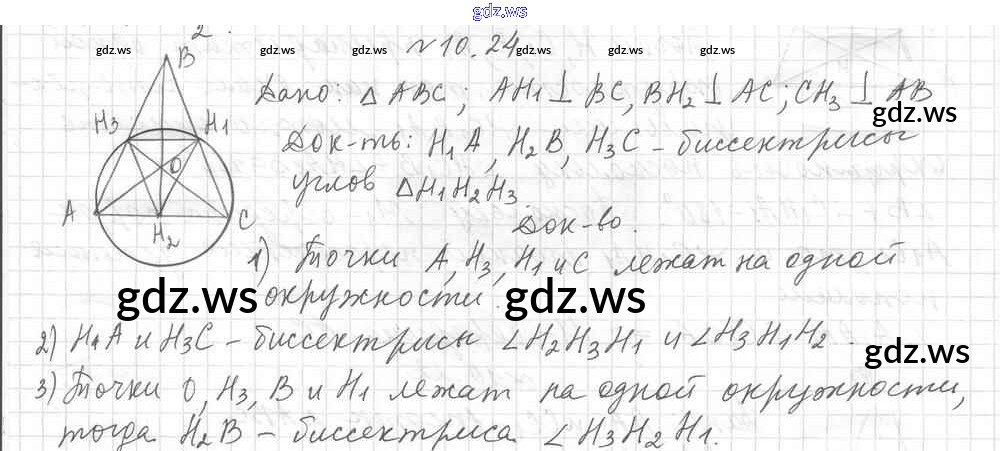 gdz.ws
2.
№10.24
gdz.ws gdz.ws gdz.ws
B
Дано: △ABC; AH1⊥BC, BH2⊥AC; CH3⊥AB
gdz.ws
H3 H1
Док-ть: H1A, H2B, H3C – биссектрисы
O
углов △H1H2H3.
gdz.ws gdz.ws gdz.ws
A C
H2
Док-во.
1) Точки A, H3, H1 и C лежат на одной
окружности.
gdz.ws gdz.ws
2) H1A и H3C – биссектрисы ∠H2H3H1 и ∠H3H1H2.
gdz.ws
3) Точки O, H3, B и H1 лежат на одной окружности,
тогда H2B – биссектриса ∠H3H2H1.